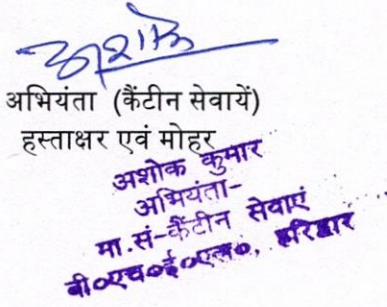 अशोक
अभियंता (कैंटीन सेवायें)
हस्ताक्षर एवं मोहर
अशोक कुमार
अभियंता-
मा.सं-कैंटीन सेवाएं
बी०एच०ई०एल०, हरिद्वार